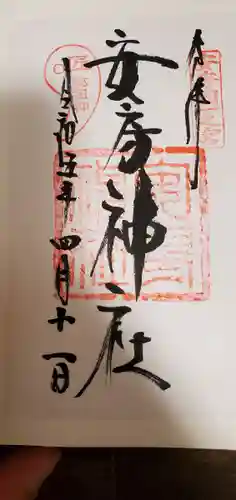 奉拝
安房神社
令和五年四月十一日